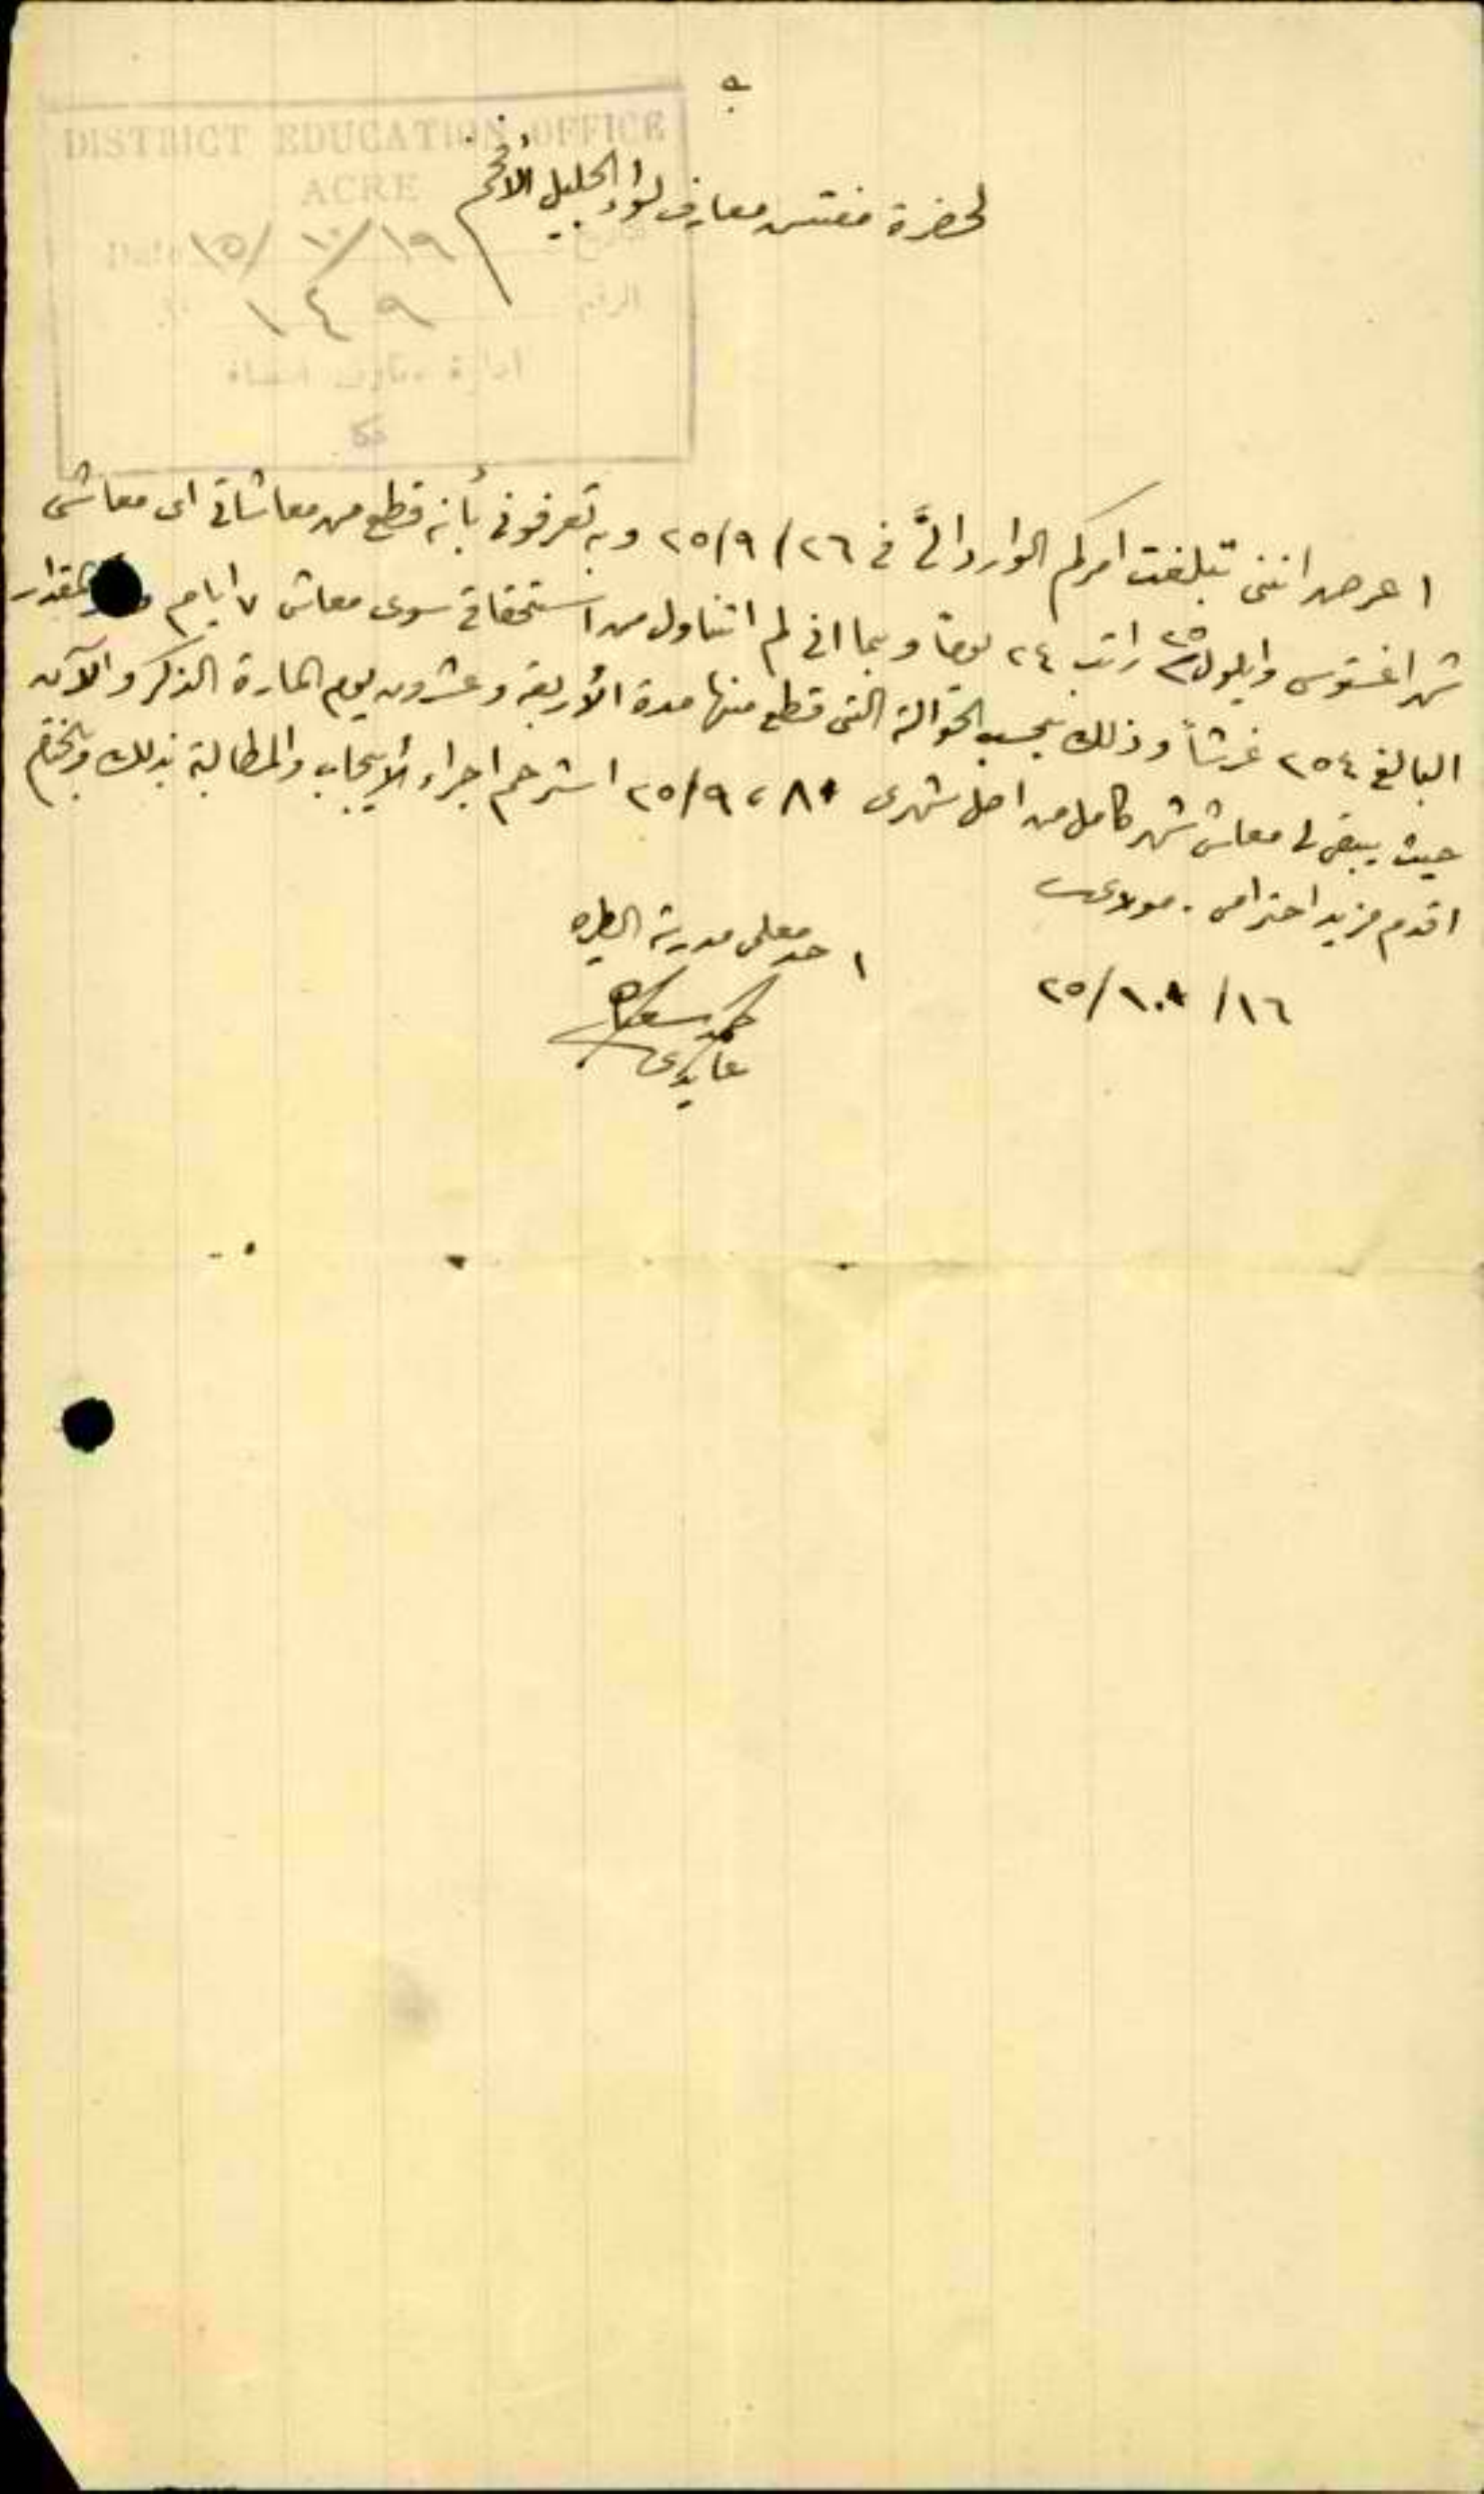 DISTRICT EDUCATION OFFICE
ACRE
Date ١٥/ ١٠/ ١٩ التاريخ
١٤٩ الرقم
ادارة معارف
عكا
لحضرة مفتش معارف لواء الجليل الأفخم
اعرض انني تبلغت امركم الوارد اليَّ في ٢٦ /٢٥/٩ وبه تعرفوني بأنه قطع من معاشاتي اي معاشي
شهر اغستوس وايلول ٢٥ راتب ٢٤ يوماً وبما اني لم اتناول من استحقاقي سوى معاش ٧ ايام المقدار
البالغ ٢٥٤ غرشاً وذلك بحسب الحوالة التي قطع منها مدة الأربعة وعشرون يوم المارة الذكر والآن
حيث يبقى لي معاش شهر كامل من اصل شهري ٨ ، ٢٥/٩ استرحم اجراء الأيجاب والمطالبة بذلك وبالختام
اقدم مزيد احترامي . مولاي
١٦/ ١٠ /٢٥
احد معلمي مدرسة الطيره
عابدي